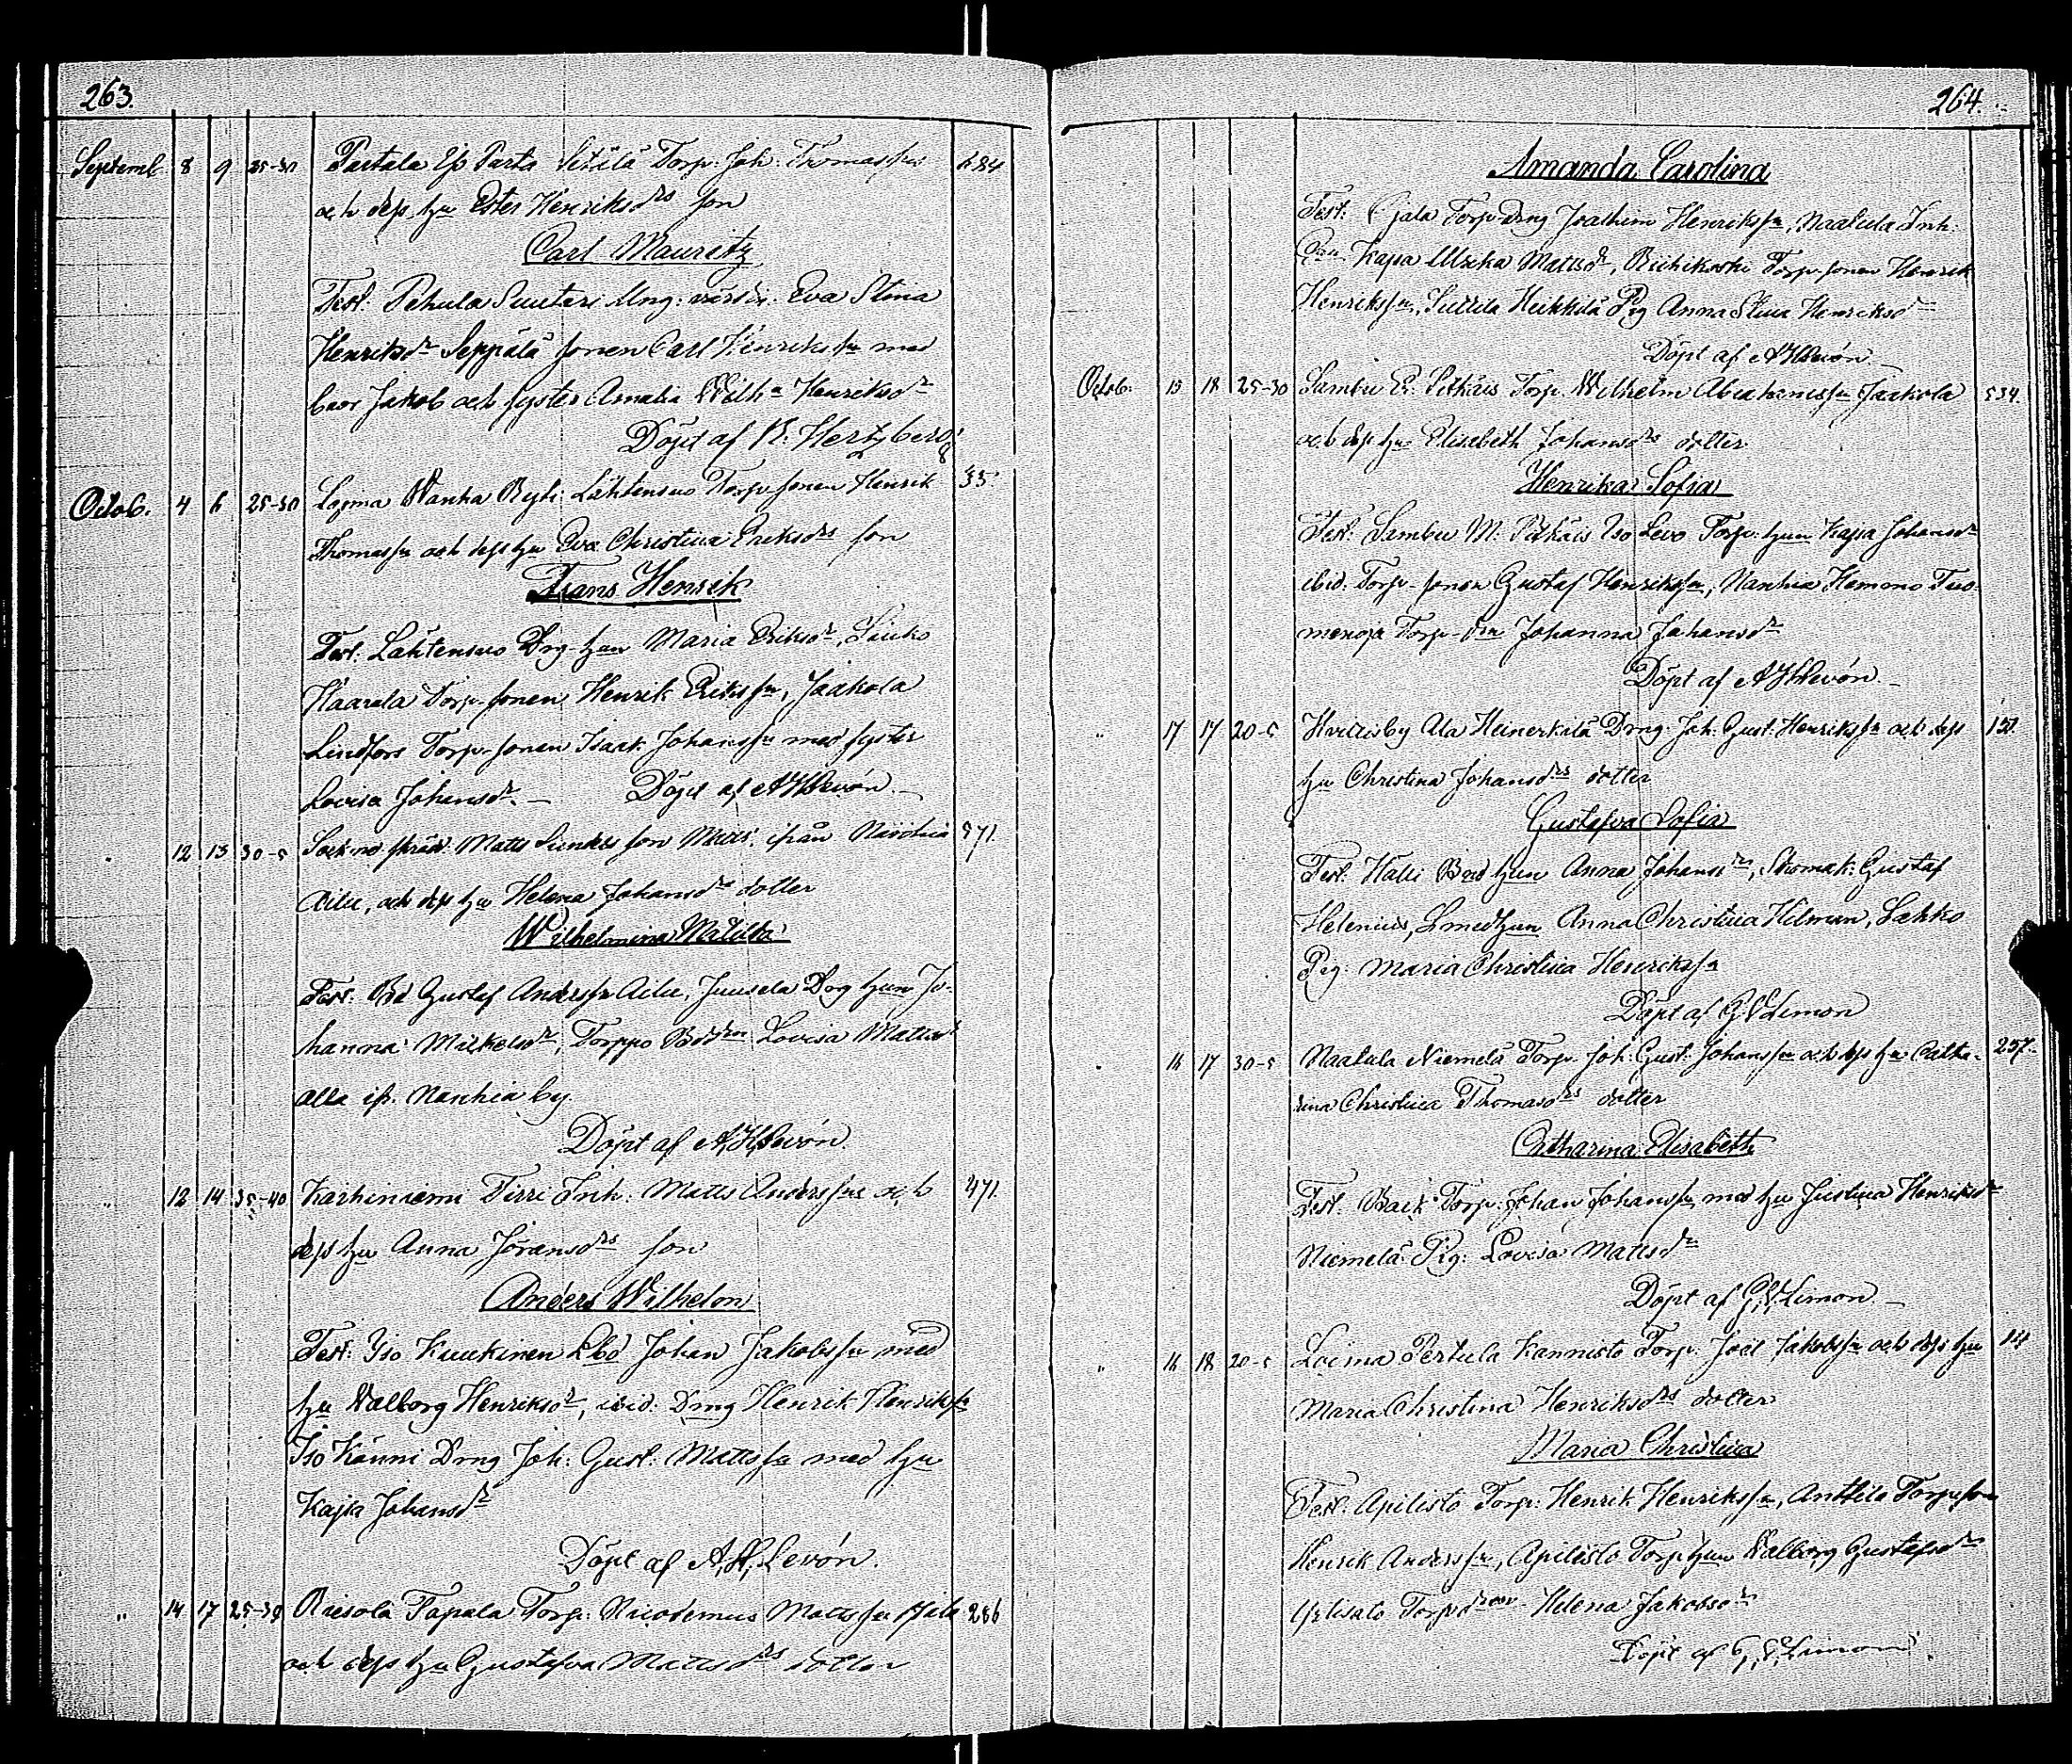 263.
Septemb. 8 9 25-30 Partala Eß Parta Setälä Torp. Joh: Thomass:ns 684
och dess hu Ester Henriksdrs son
Carl Mauritz
Test: Pehula Suutari Ung: värdn: Eva Stina
Henriksdr Seppälä sonen Carl Henrikssn med
bror Jakob och syster Amalia Wilh:a Henriksdr
Döpt af K. Hertzberg
Octob. 4 6 25-30 Loima Wanha Lähtensuo Torp. sonen Henrik 33
Thomassn och dess hu Eva Christina Eriksdrs son
Frans Henrik
Test: Lähtensuo Drg hun Maria Eriksdr,
Haarala Torp. sonen Henrik Erikssn, Jaakola
Lindfors Torp-sonen Isaak Johanssn med syster
Lovisa Johansdr. — Döpt af A H Levón. —
" 12 13 30-5 Matts son ifrån 571.
Ailu, och dess hu Helena Johansdrs dotter
Wilhelmina Matilda
Test: Bd Gustaf Anderssn Ailu, Juusela Drg hun Jo-
hanna Mickelsdr, Torppo Bddrn Lovisa Mattsdr
alla ifr. Nanhia by.
Döpt af A H Levón.
" 12 14 35-40 Karhiniemi Tirri Inh: Matts Anderssns och 471.
dess hu Anna Jöransdrs son
Anders Wilhelm
Test: Iso Kuukinen Lbd Johan Jakobssn med
hu Walborg Henriksdr, ibid: Drng Henrik Henrikssn
Iso Känni Drng Joh: Gust: Mattssn med hu
Kajsa Johansdr
Döpt af A. H. Levón.
" 14 17 25-30 Raisola Papala Torp: Nicodemus Mattssn 286
och dess hu Gustafva Mattsdrs dotter
264.
Amanda Carolina
Test: Torp-Drng Joachim Henrikssn, Naatula Inh:
Kajsa Ulrika Mattsdr, Torp. sonen Henrik
Henrikssn, Heikkilä Pig Anna Stina Henriksdr
Döpt af A H Levón
Octob. 15 18 25-30 Sambu E. Pitkäis Torp. Wilhelm Abrahamssn Jaakola 534.
och dess hu Elisabeth Johansdrs dotter
Henrika Sofia
Test: Sambu M: Pitkäis Iso Levo Torp: hun Kajsa Johansdr
ibid: Torp-sonen Gustaf Henrikssn, Nanhia Hemmo Tuo-
menoja Torp-drn Johanna Johansdr
Döpt af A H Levón. —
" 17 17 20-5 Huittisby Ala Heinerkilä Drng: Joh: Gust: Henrikssn och dess 150.
hu Christina Johansdrs dotter
Gustafva Sofia
Test: Bd hun Anna Johansdr, Skomak: Gustaf
Helenius, Smedhun Anna Christina Hilman, Lahko
Pig: Maria Christina Henrikssn
Döpt af G V Limon
" 16 17 30-5 Naatula Niemelä Torp. Joh: Gust: Johanssn och dess hu Catha- 257.
rina Christina Thomasdrs dotter
Catharina Elisabeth
Test: Back Torp: Johan Johanssn med hu Justina Henriksdr
Niemelä Pig: Lovisa Mattsdr
Döpt af G. V. Limon. —
" 16 18 20-5 Loima Pertula Kannisto Torp: Joel Jakobssn och dess hu
Maria Christina Henriksdrs dotter
Maria Christina
Test: Apilisto Torp: Henrik Henrikssn, Anttila Torp: son
Henrik Anderssn, Apilisto Torp hun Walborg Gustafsdr
Torp: Helena Jakobsdr
Döpt af G. V. Limon